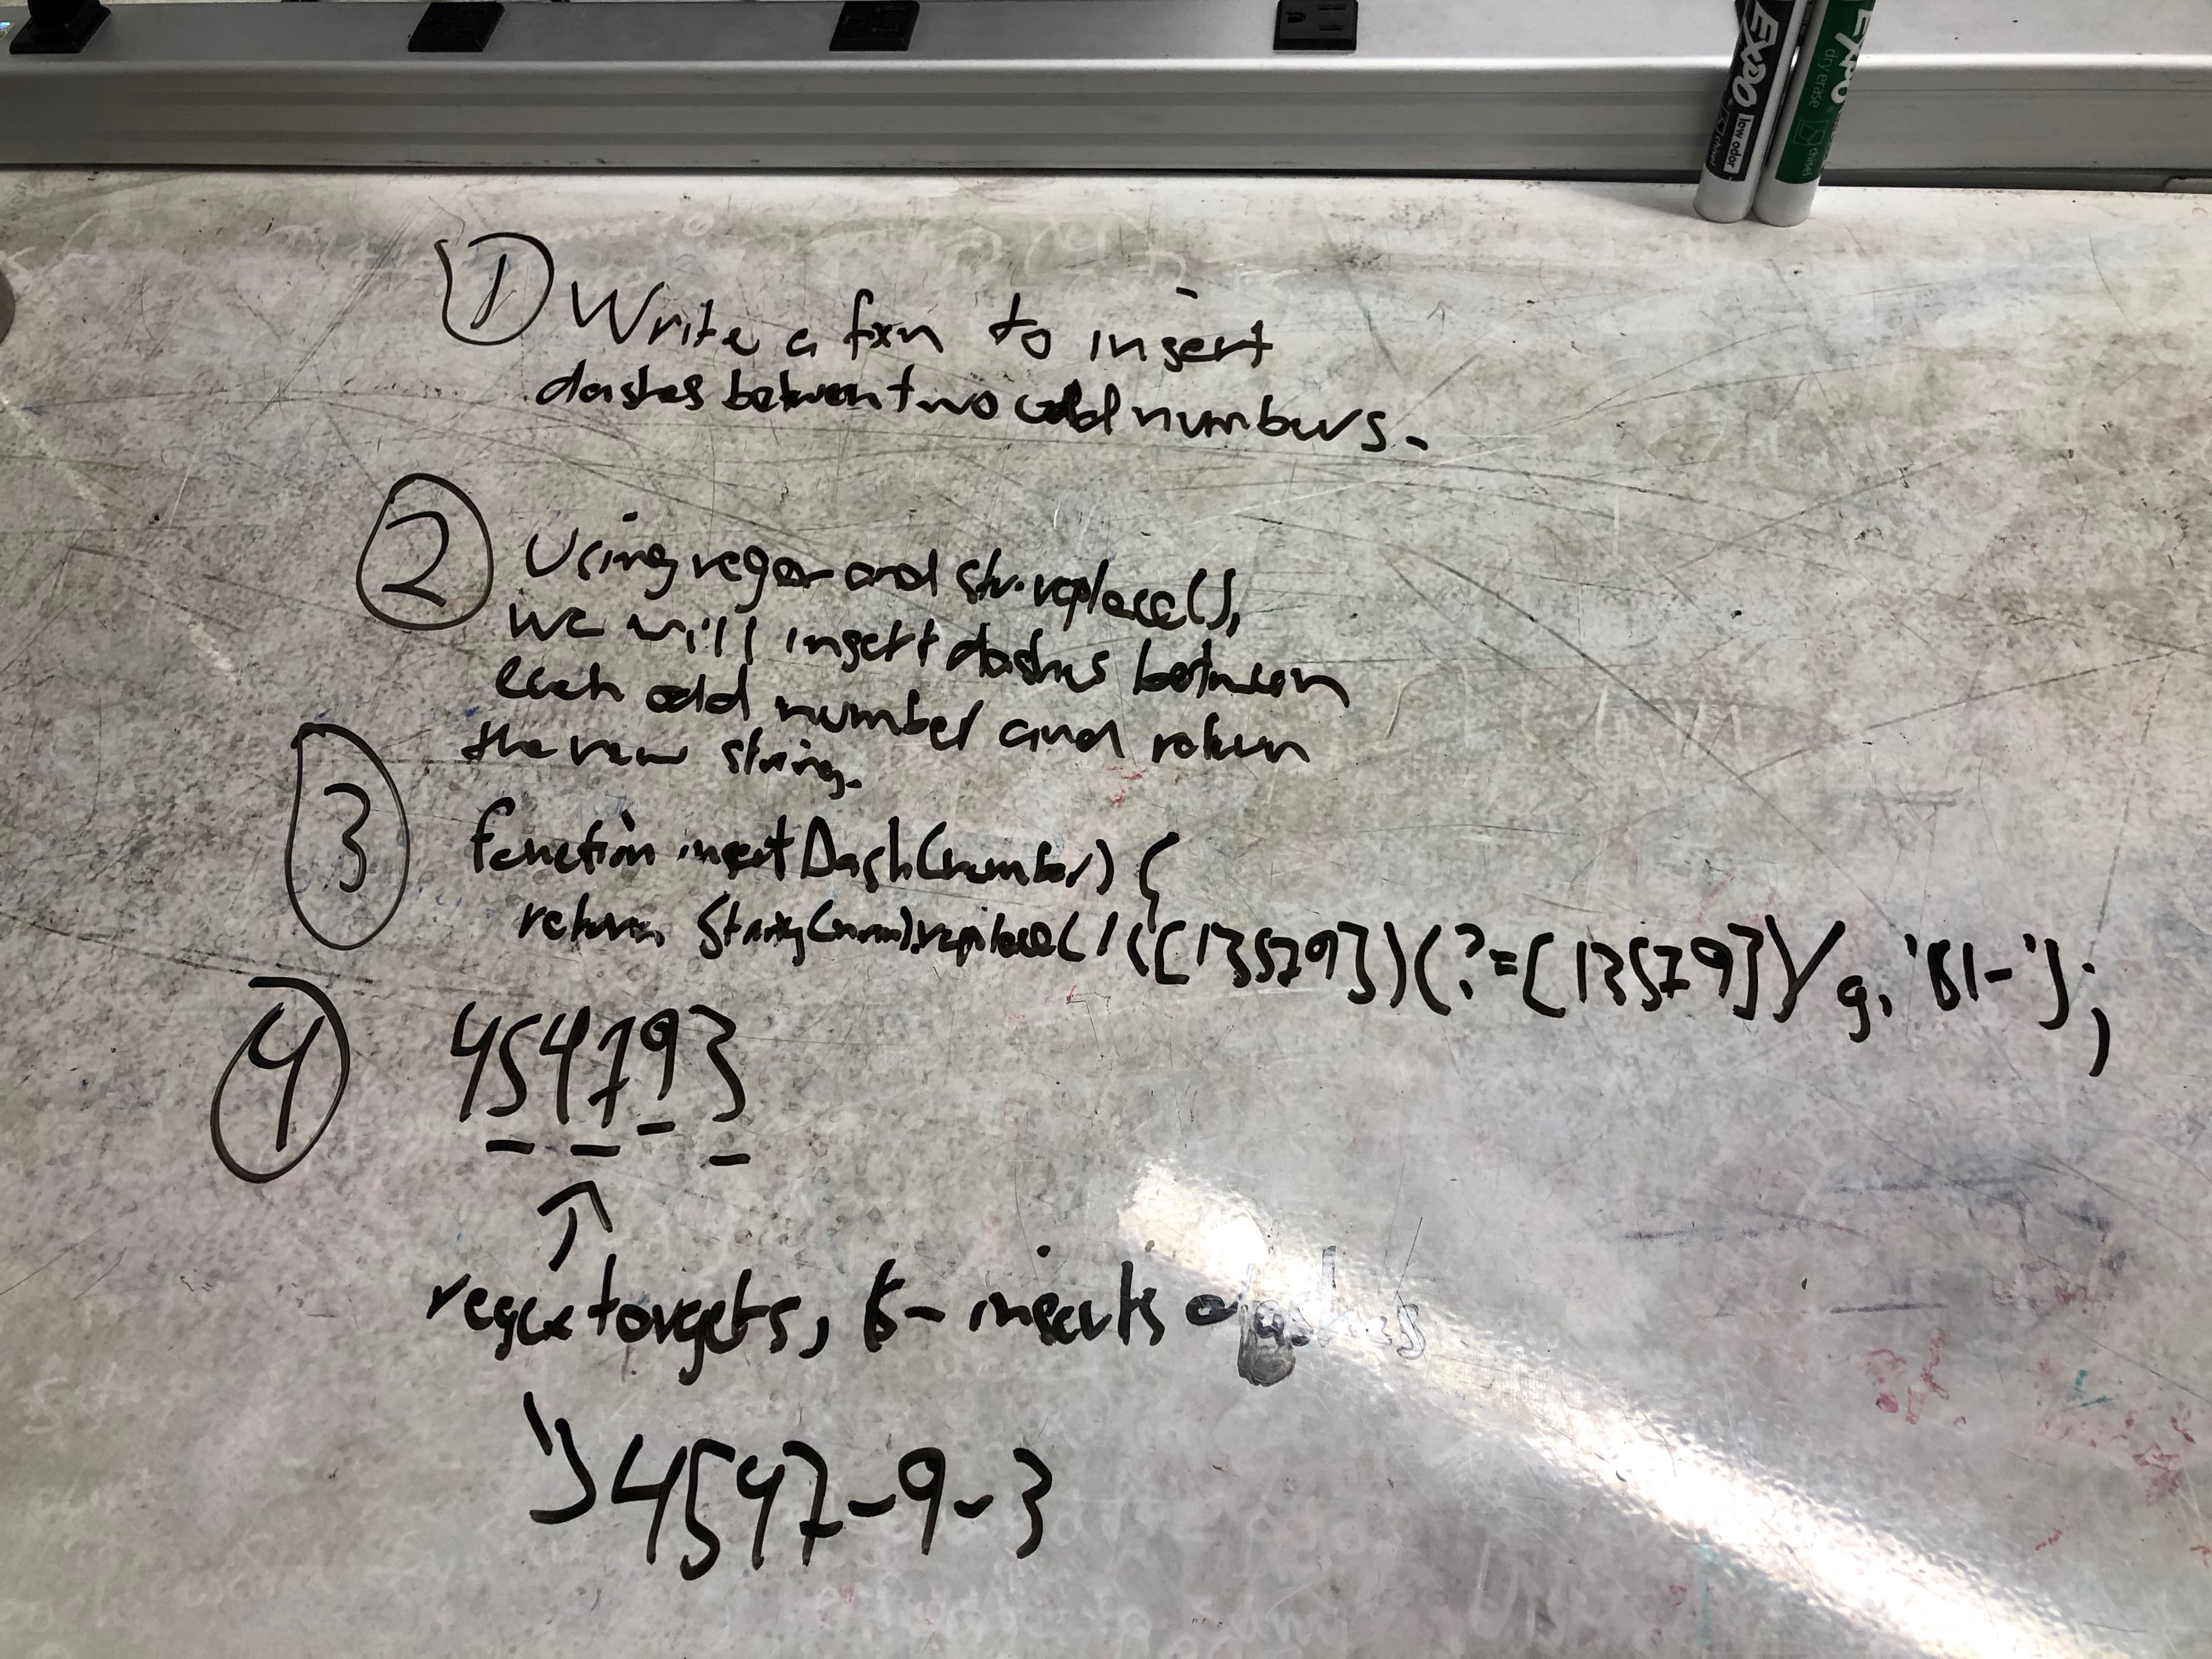 EXPO low odor chisel
EXPO dry erase chisel
① Write a fxn to insert
dashes between two odd numbers.
② Using regex and str.replace(),
we will insert dashes between
each odd number and return
the new string.
③ function insertDash(number) {
return String(num).replace(/([13579])(?=[13579])/g, '$1-');
}
④ 454793
regex targets, $- inserts dashes
4547-9-3